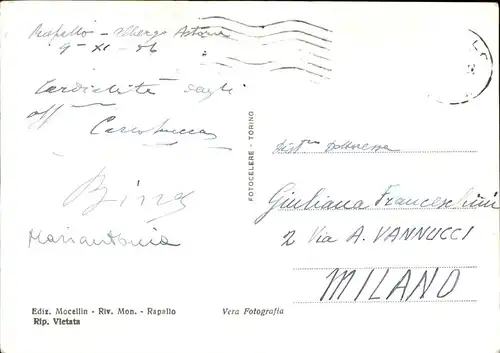 Rapallo - Albergo Astoria
9-XI-56
Cordialità dagli
aff
Bing
Mariantonia
Ediz. Mocellin - Riv. Mon. - Rapallo
Rip. Vietata
Vera Fotografia
FOTOCELERE - TORINO
Giuliana Franceschini
2 Via A. VANNUCCI
MILANO